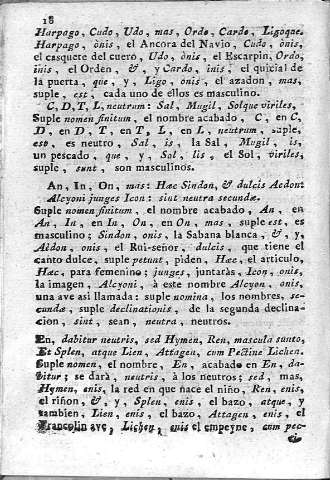 18
Harpago, Cudo, Udo, mas, Ordo, Cardo, Ligoque.
Harpago, ònis, el Ancora del Navio, Cudo, ònis,
el casquete del cuero, Udo, ònis, el Escarpin, Ordo,
inis, el Orden, &, y Cardo, inis, el quicial de
la puerta, que, y, Ligo, ònis, el azadon, mas,
suple, est, cada uno de éllos es masculino.
C, D, T, L, neutrum: Sal, Mugil, Solque viriles.
Suple nomen finitum, el nombre acabado, C, en C,
D, en D, T, en T, L, en L, neutrum, suple,
est, es neutro, Sal, is, la Sal, Mugil, is,
un pescado, que, y, Sol, lis, el Sol, viriles,
suple, sunt, son masculinos.
An, In, On, mas: Hæc Sindon, & dulcis Aedon:
Alcyoni junges Icon: sint neutra secundæ.
Suple nomen finitum, el nombre acabado, An, en
An, In, en In, On, en On, mas, suple est, es
masculino; Sindon, onis, la Sabana blanca, &, y,
Aëdon, onis, el Rui-señor, dulcis, que tiene el
canto dulce, suple petunt, piden, Hæc, el articulo,
Hæc, para femenino; junges, juntaràs, Icon, onis,
la imagen, Alcyoni, à este nombre Alcyon, onis,
una ave asi llamada: suple nomina, los nombres, se-
cundæ, suple declinationis, de la segunda declina-
cion, sint, sean, neutra, neutros.
En, dabitur neutris, sed Hymen, Ren, mascula sunto,
Et Splen, atque Lien, Attagen, cum Pectine Lichen.
Suple nomen, el nombre, En, acabado en En, da-
bitur; se darà, neutris, à los neutros; sed, mas,
Hymen, enis, la red en que nace el niño, Ren, enis,
el riñon, &, y, Splen, enis, el bazo, atque, y
tambien, Lien, enis, el bazo, Attagen, enis, el
Francolin ave, Lichen, enis el empeyne, cum pec-